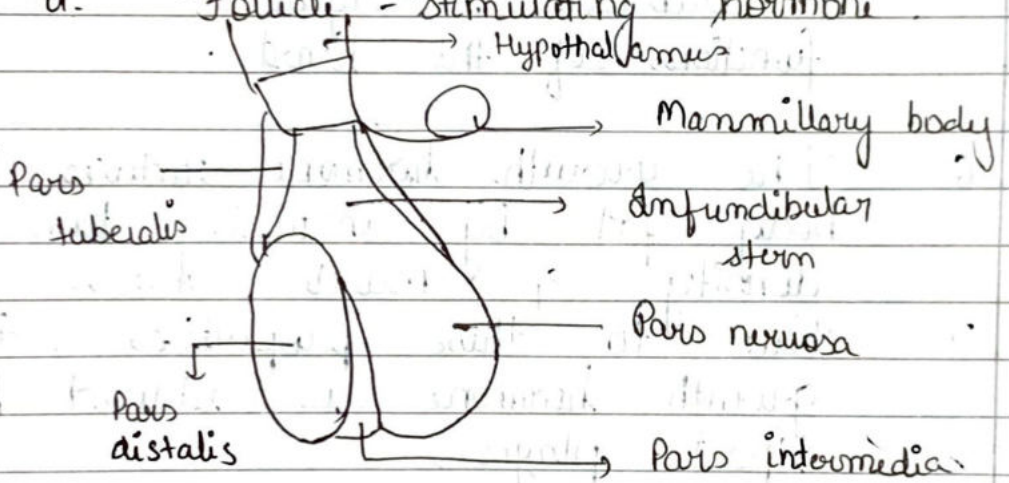 d. Follicle - stimulating hormone
Hypothalamus
Manmillary body
Pars
tuberalis
Infundibular
stem
Pars nervosa
Pars
distalis
Pars intermedia.